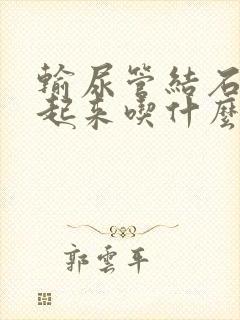 輸尿管結石
起来喫什麼
郭雲平